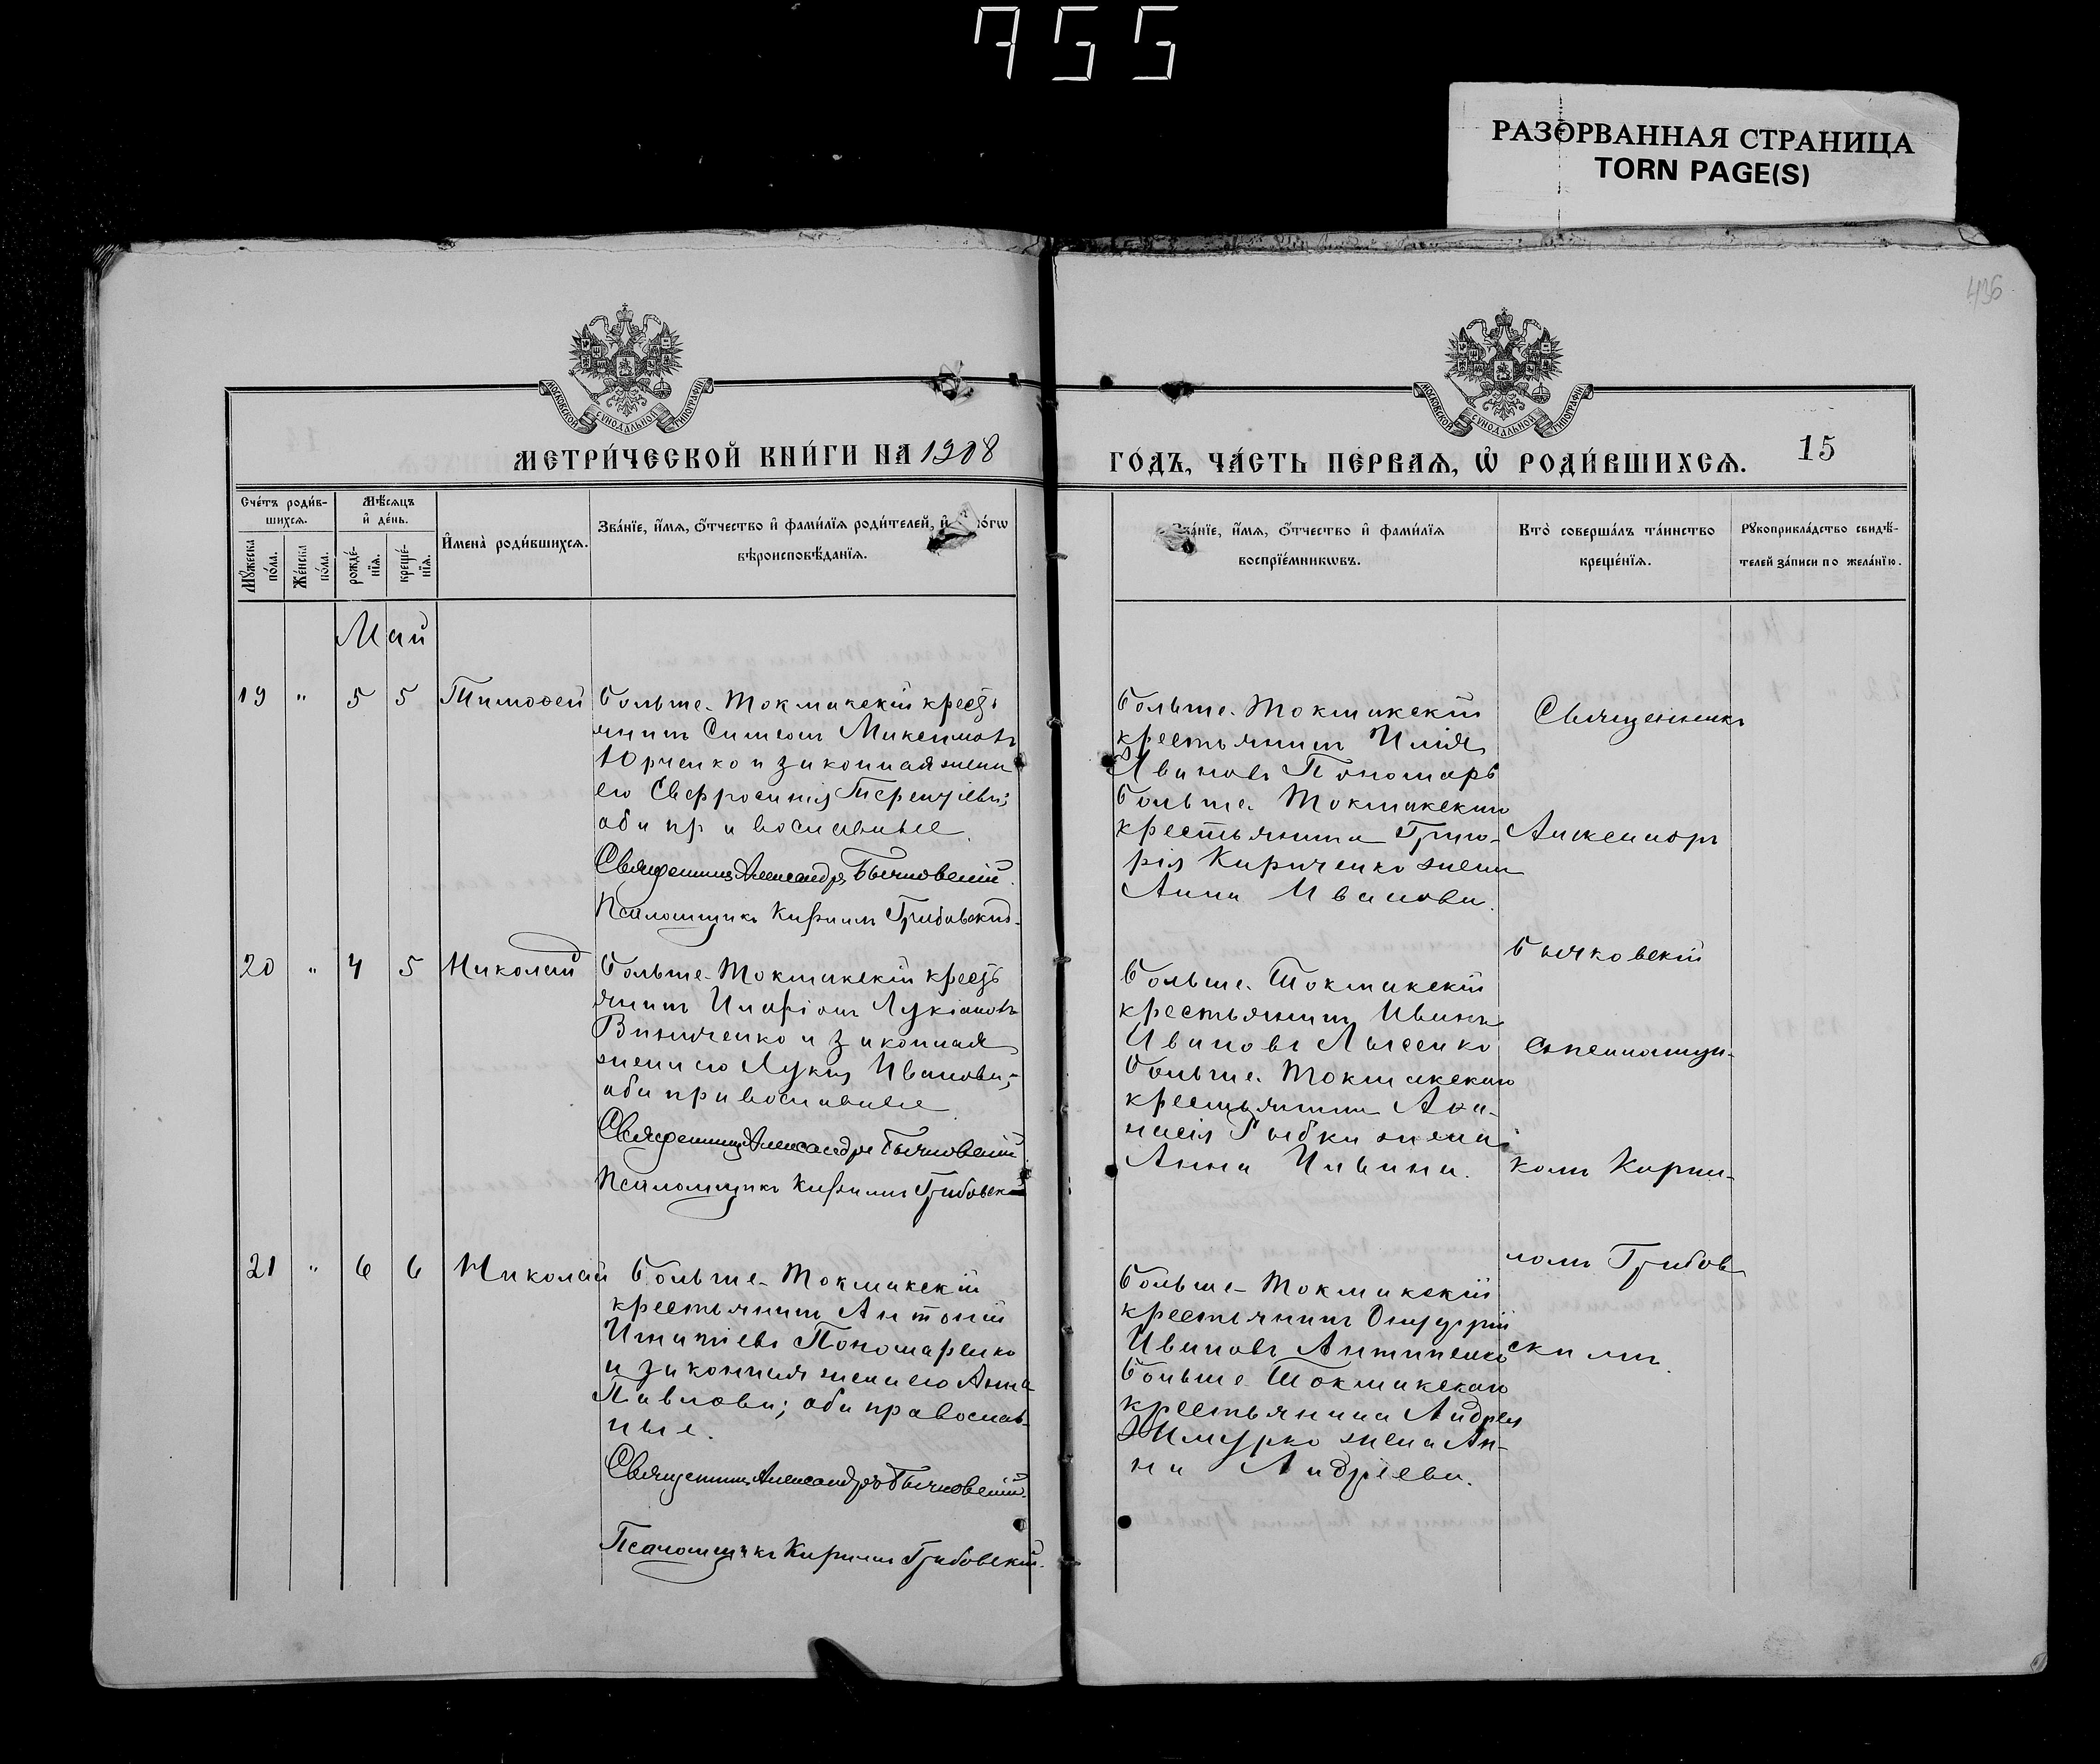 755
РАЗОРВАННАЯ СТРАНИЦА
TORN PAGE(S)
436
МОСКОВСКОЙ СУНОДАЛЬНОЙ ТИПОГРАФІИ
МОСКОВСКОЙ СУНОДАЛЬНОЙ ТИПОГРАФІИ
МЕТРИ́ЧЕСКОЙ КНИ́ГИ НА 1908
ГО́ДЪ, ЧА́СТЬ ПЕ́РВАѦ, Ѡ҆ РОДИ́ВШИХСѦ.
15
Сче́тъ роди́в-
шихсѧ.
Мѣ́сѧцъ
и҆ де́нь.
Мꙋ́жеска
по́ла.
Же́нска
по́ла.
рожде́-
нїѧ.
креще́-
нїѧ.
И҆мена̀ роди́вшихсѧ.
Зва́нїе, и҆́мѧ, ѻ҆́тчество и҆ фами́лїѧ роди́телей, и҆
вѣроисповѣ́данїѧ.
Зва́нїе, и҆́мѧ, ѻ҆́тчество и҆ фами́лїѧ
воспрїе́мникѡвъ.
Кто̀ соверша́лъ та́инство
креще́нїѧ.
Рꙋкоприкла́дство свидѣ́-
телей за́писи по жела́нїю.
Май
19 " 5 5 Тимоѳей
Больше-Токмакскій кресть
янинъ Симеонъ Максимовъ
Юрченко и законная жена
его Евфросинія Терентіева;
оба православные.
Священникъ Александръ Бычковскій.
Псаломщикъ Кириллъ Грибовскій.
Больше-Токмакскій
крестьянинъ Илія
Ивановъ Пономарь
Больше-Токмакскаго
крестьянина Григо-
рія Кириченко жена
Анна Иванова.
Священникъ
Александръ
Бычковскій
20 " 4 5 Николай
Больше-Токмакскій кресть
янинъ Иларіонъ Лукіановъ
Винниченко и законная
жена его Лукія Иванова;
оба православные
Священникъ Александръ Бычковскій
Псаломщикъ Кириллъ Грибовскій
Больше-Токмакскій
крестьянинъ Иванъ
Ивановъ Лысенко
Больше-Токмакскаго
крестьянина Аѳа-
насія Рыбки жена
Анна Ильина.
съ псаломщи-
комъ Кирил-
21 " 6 6 Николай
Больше-Токмакскій
крестьянинъ Антоній
Игнатіевъ Пономаренко
и законная жена его Анна
Павлова; оба православ-
ные.
Священникъ Александръ Бычковскій.
Псаломщикъ Кириллъ Грибовскій.
Больше-Токмакскій
крестьянинъ Онуфрій
Ивановъ Антипенко
Больше-Токмакскаго
крестьянина Андрея
жена Ан-
на Андреева.
ломъ Грибов
скимъ.